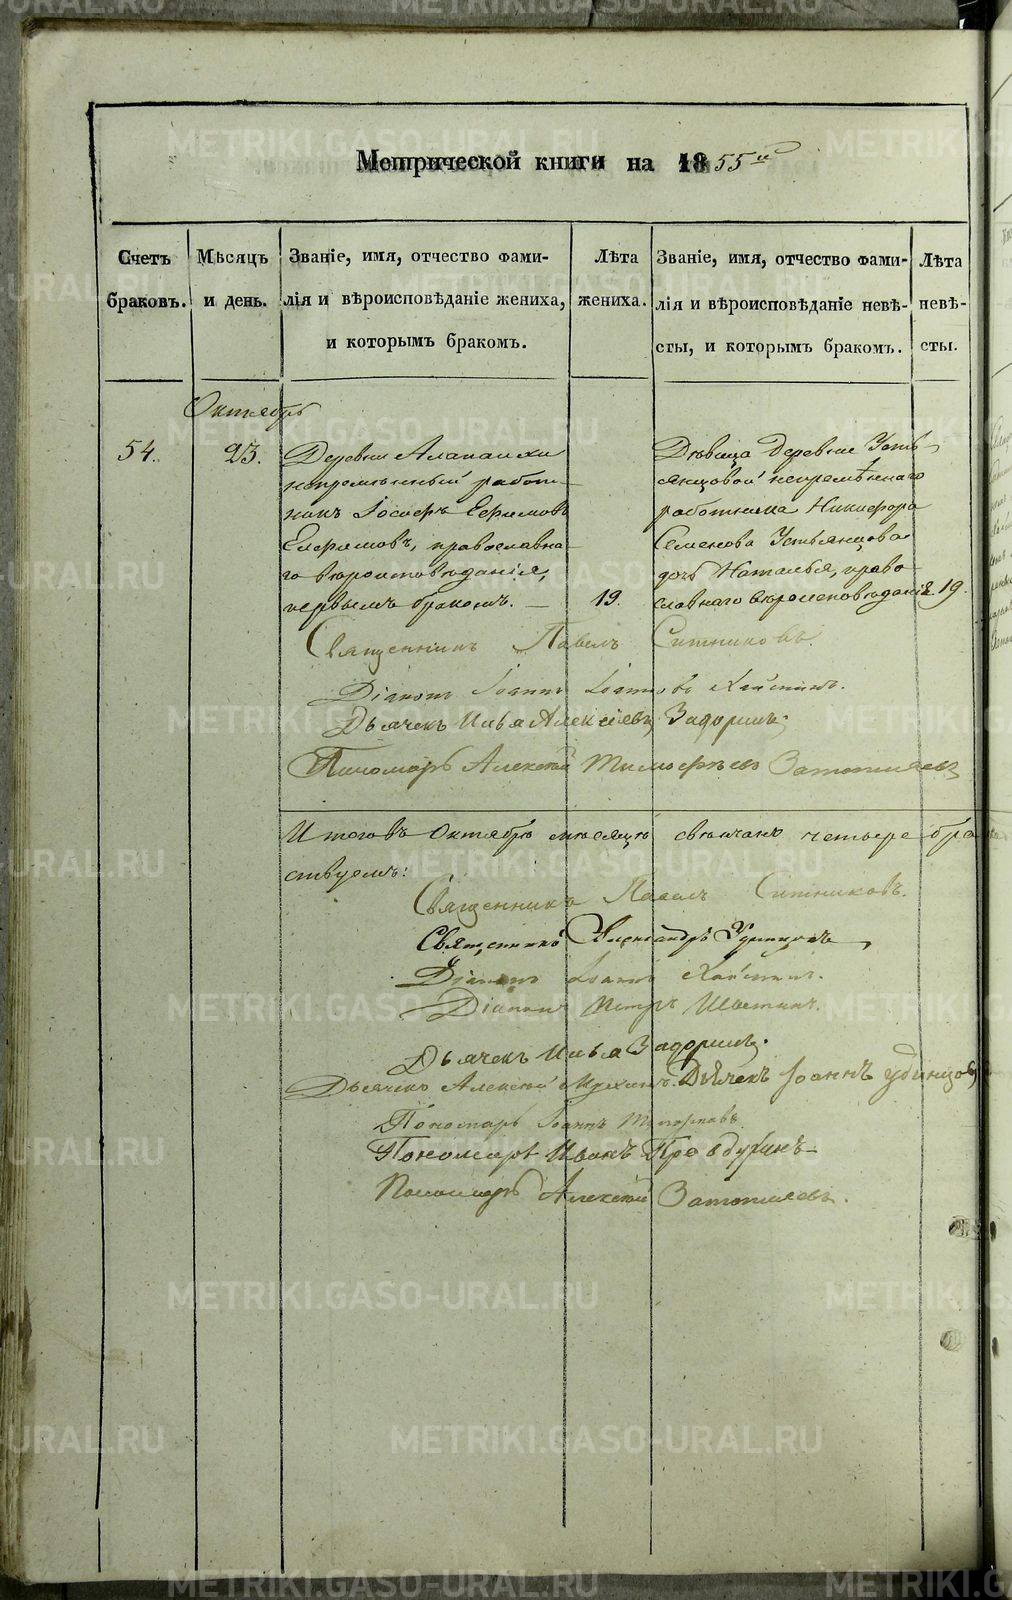 Метрической книги на 1855й
Счетъ браковъ.
Мѣсяцъ и день.
Званіе, имя, отчество фами-
лія и вѣроисповѣданіе жениха,
и которымъ бракомъ.
Лѣта жениха.
Званіе, имя, отчество фами-
лія и вѣроисповѣданіе невѣ-
сты, и которымъ бракомъ.
Лѣта невѣ-
сты.
Октябрь
54.
23.
Деревни Алапаихи
непремѣнный работ-
никъ Іосифъ Ефимовъ
Елфимовъ, православна-
го вѣроисповѣданія,
первымъ бракомъ.
19.
Дѣвица деревни Усть-
янцовой непремѣннаго
работника Никифора
Семенова Устьянцова
дочь Наталья, право-
славнаго вѣроисповѣданія.
19.
Священникъ Павелъ Ситниковъ.
Діаконъ Іоаннъ Іоанновъ
Дьячекъ Илья Алексіевъ Задоринъ.
Пономарь Алексій Тимофѣевъ
Итого въ Октябрѣ мѣсяцѣ свѣнчано четыре
Священникъ Павелъ Ситниковъ.
Священникъ Александръ Удинцовъ
Діаконъ Іоаннъ
Діаконъ Петръ
Дьячекъ Илья Задоринъ.
Дьячекъ Алексій Мухинъ. Дьячекъ Іоаннъ Удинцовъ
Пономарь Іоаннъ Топорковъ
Пономарь Иванъ Правдухинъ
Пономарь Алексій
METRIKI.GASO-URAL.RU